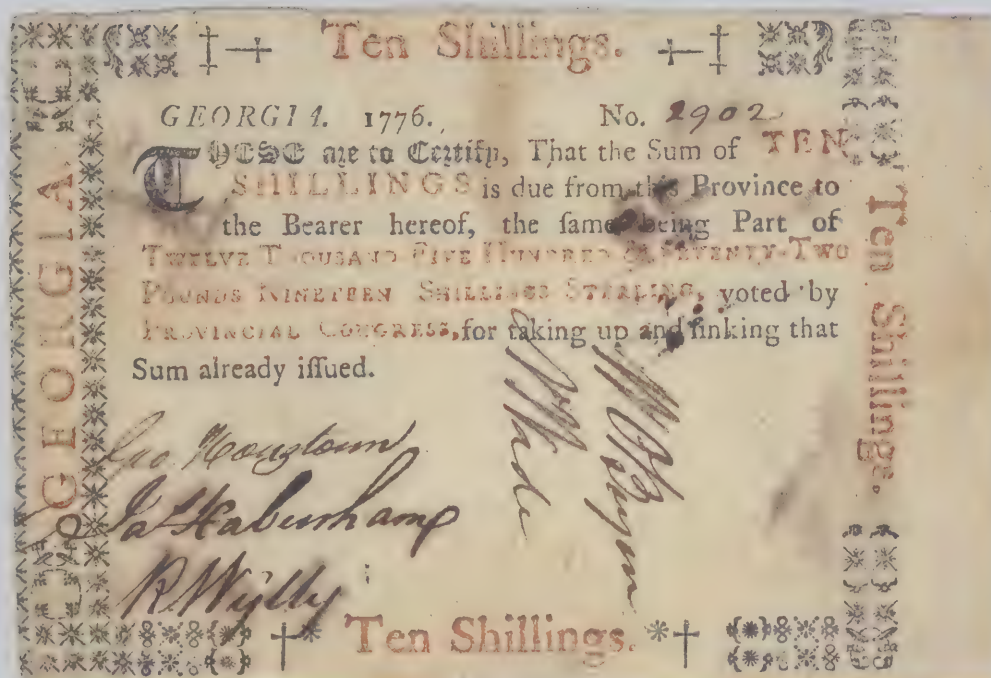 Ten Shillings.
GEORGIA. 1776. No. 2902
THESE are to Certify, That the Sum of TEN
SHILLINGS is due from this Province to
the Bearer hereof, the ſame being Part of
TWELVE THOUSAND FIVE HUNDRED & SEVENTY-TWO
POUNDS NINETEEN SHILLINGS STERLING, voted by
PROVINCIAL CONGRESS, for taking up and ſinking that
Sum already iſſued.
Geo Houstoun
Jas Habersham
R Wylly
N Wade
W O'Bryen
Ten Shillings.
GEORGIA
Ten Shillings.